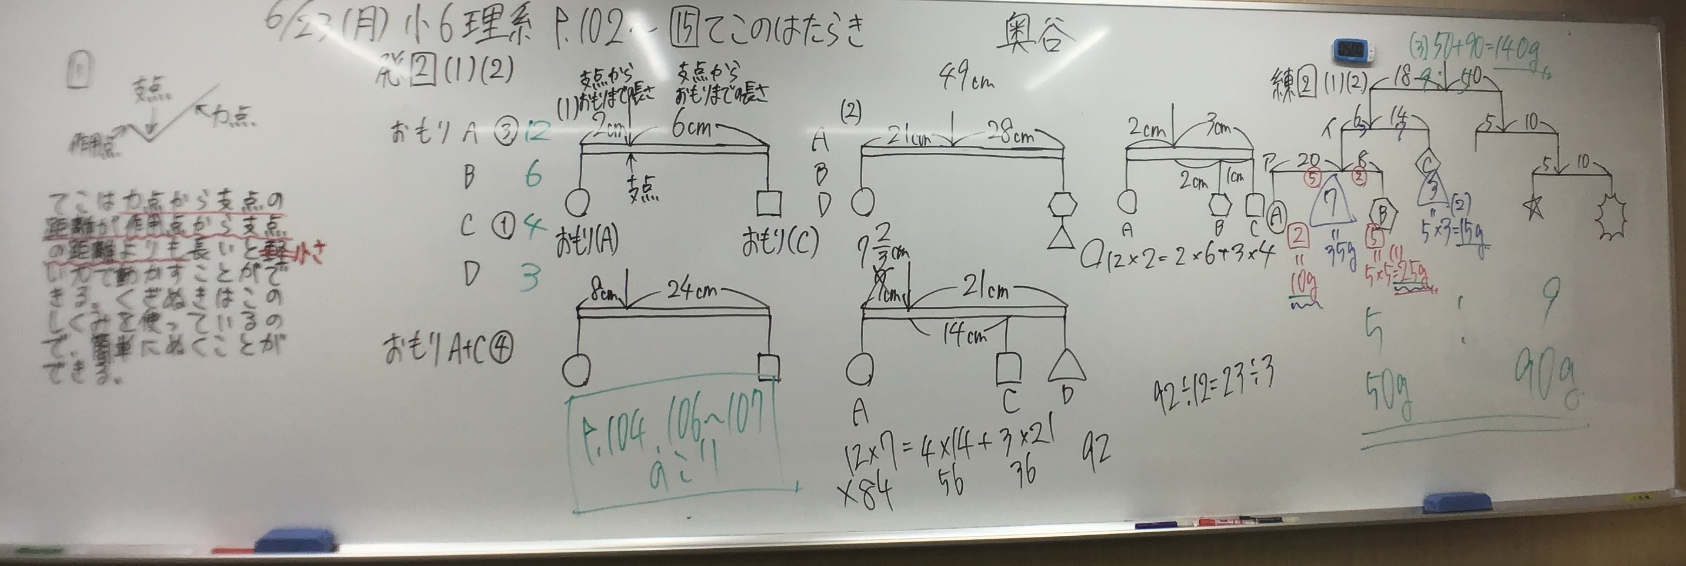 6/23(月)小6理系 P.102~ 15 てこのはたらき 奥谷
1
支点
力点
作用点
てこは力点から支点の
距離が作用点から支点
の距離よりも長いと軽小さ
い力で動かすことがで
きる。くぎぬきはこの
しくみを使っているの
で、簡単にぬくことが
できる。
発2(1)(2)
おもりA ③ 12
B 6
C ① 4
D 3
おもりA+C ④
(1)
支点から
おもりまでの長さ
支点から
おもりまでの長さ
2cm 6cm
支点
おもり(A) おもり(C)
8cm 24cm
P.104、106~107
のこり
(2)
49cm
A
B
D
21cm 28cm
9 2/3cm
7cm 21cm
14cm
A C D
12×7=4×14+3×21
×84 56 36 92
2cm 3cm
2cm 1cm
A B C
12×2=2×6+3×4
92÷12=23÷3
(3)50+90=140g
練2(1)(2)
18 40
イ 6 14
5 10
ア 20 8
5 10
⑤ ②
C
A 7 B 3
2 5 (2)
35g
5×3=15g
10g
(1)
5×5=25g
5 : 9
50g 90g